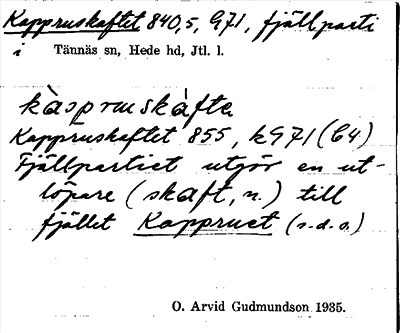 Kappruskaftet 840,5, G71, fjällparti
i Tännäs sn, Hede hd, Jtl. l.
kàspruskáfte
Kappruskaftet 855, kG71 (C4)
Fjällpartiet utgör en ut-
löpare (skaft, n.) till
fjället Kappruet (s.d.o.)
O. Arvid Gudmundson 1935.